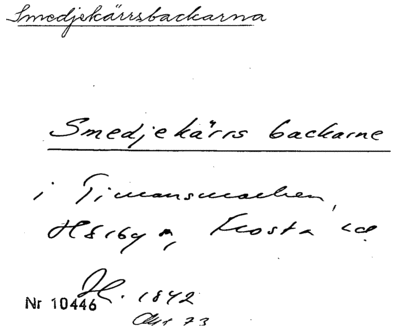 Smedjekärrsbackarna
Smedjekärrs backarne
i Timansmarken,
Hörby n, Frosta hd.
H. 1842
Nr 10446
Akt 73